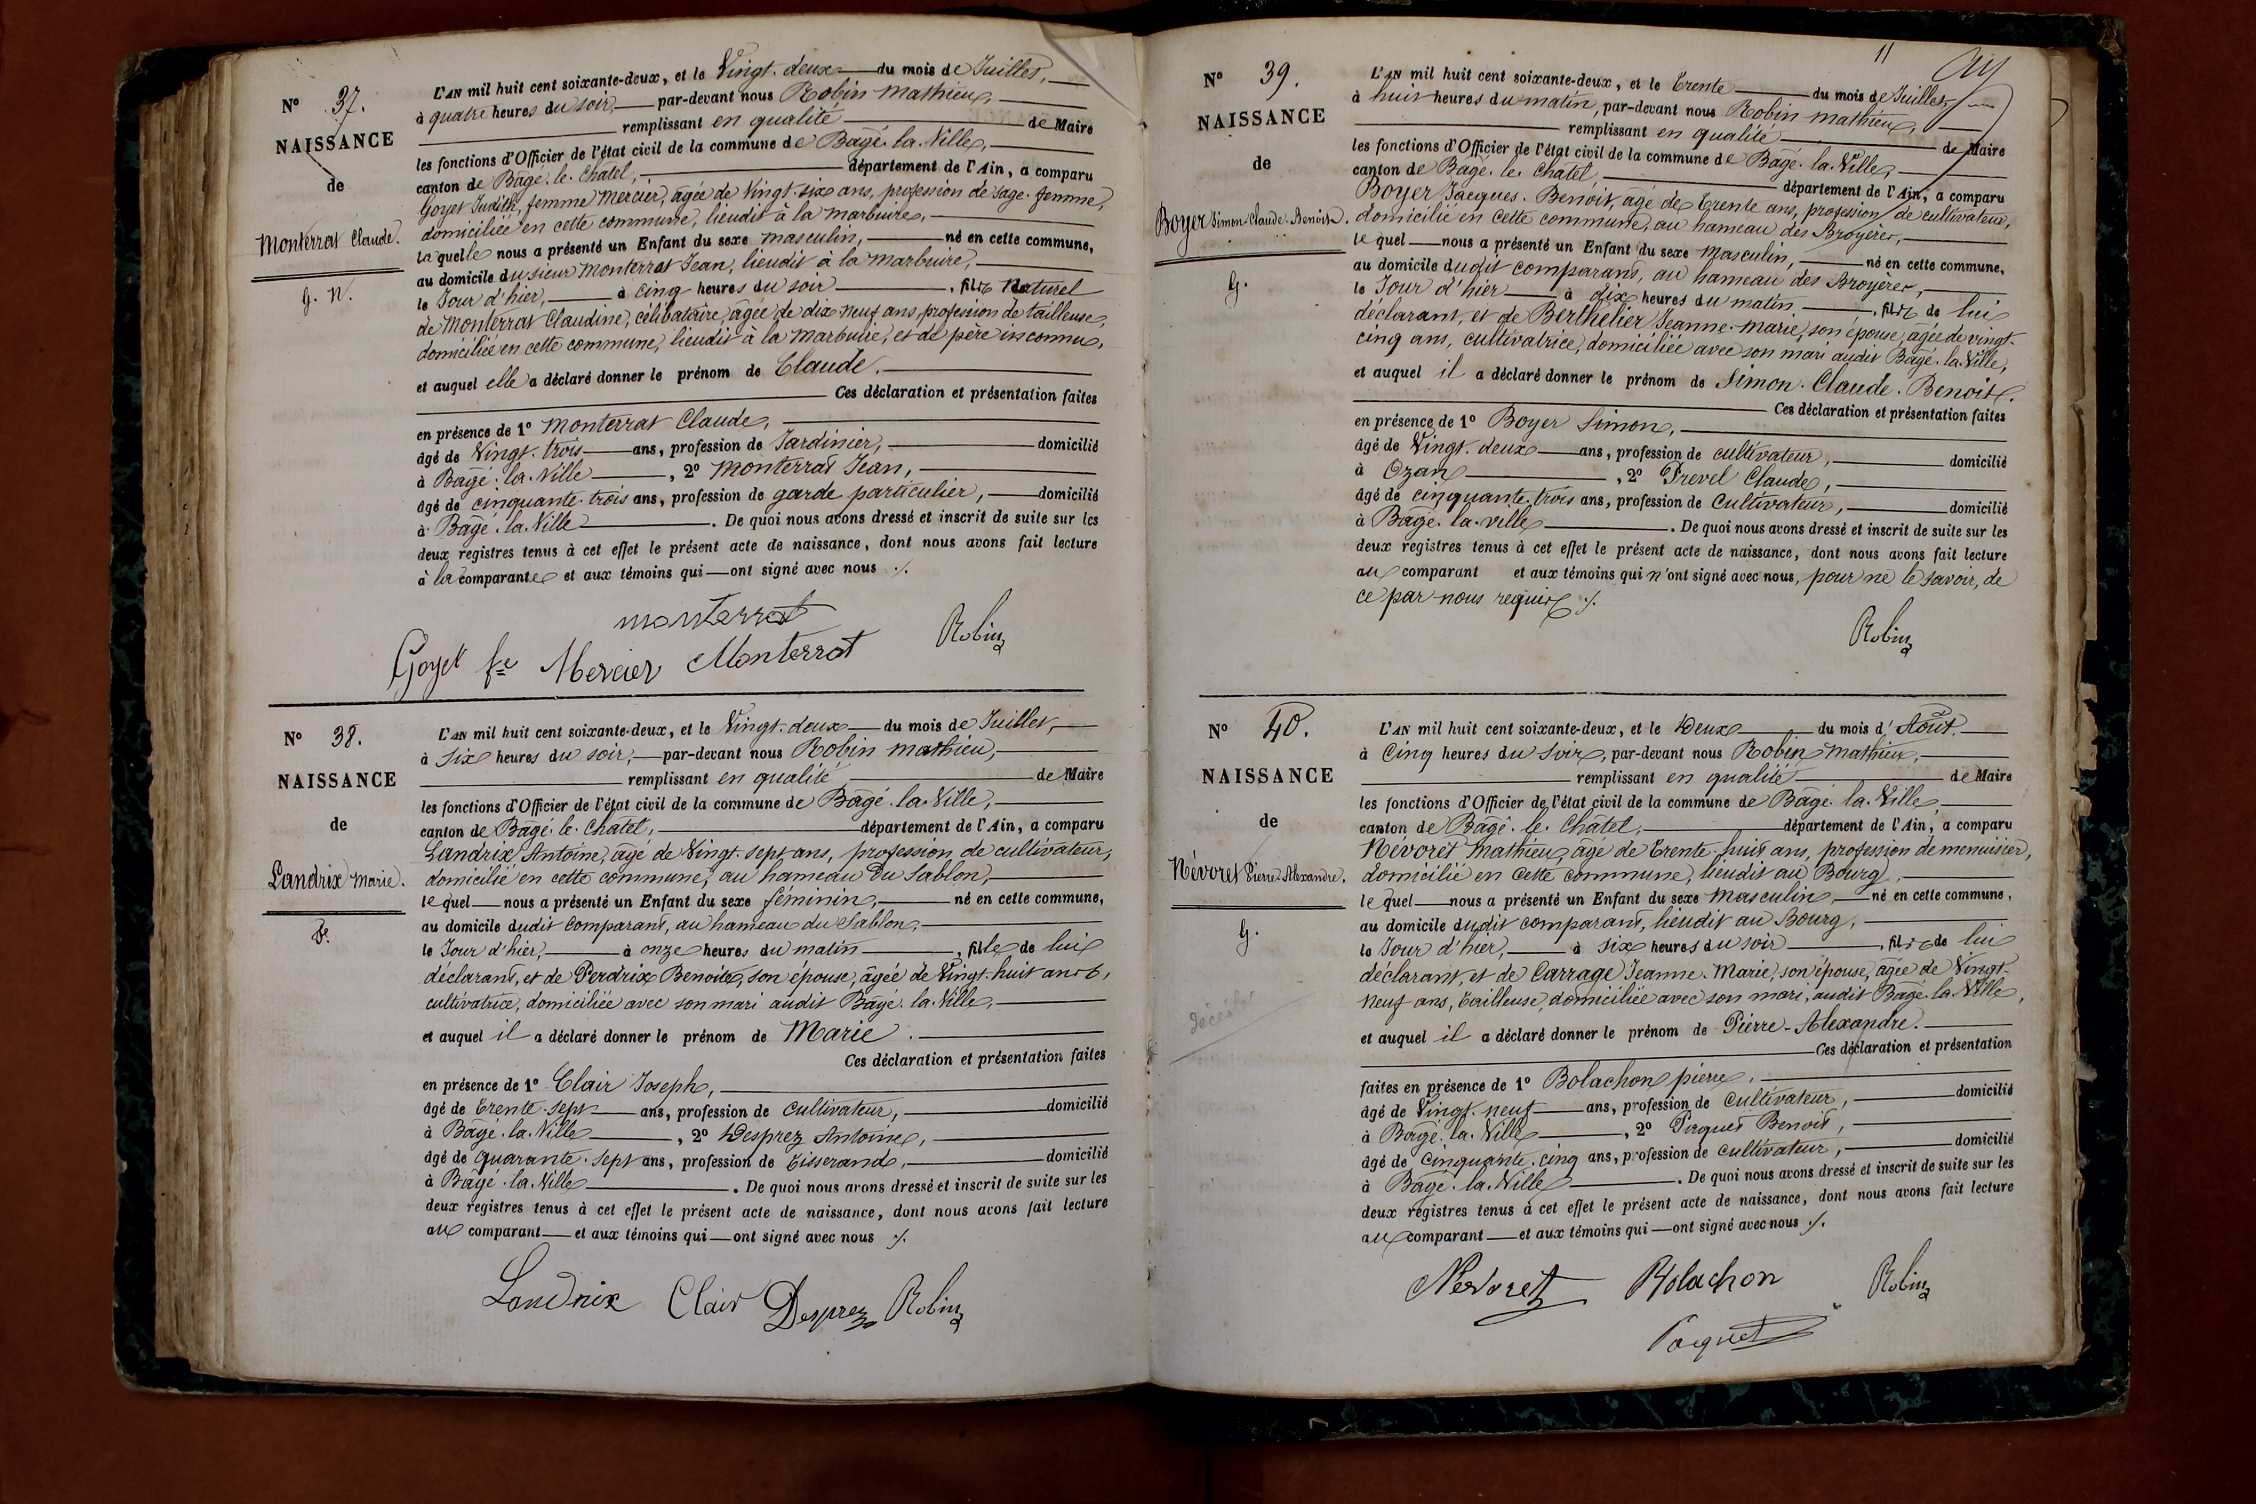 N° 37.
NAISSANCE
de
Monterrat Claude.
g. N.
L'AN mil huit cent soixante-deux, et le Vingt-deux du mois de Juillet,
à quatre heures du soir, par-devant nous Robin Mathieu,
remplissant en qualité de Maire
les fonctions d'Officier de l'état civil de la commune de Bâgé-la-Ville,
canton de Bâgé-le-Châtel, département de l'Ain, a comparu
Goyet Judith, femme Mercier, âgée de Vingt-six ans, profession de Sage-femme,
domiciliée en cette commune, lieudit à la Marbuire,
laquelle nous a présenté un Enfant du sexe masculin, né en cette commune,
au domicile du sieur Monterrat Jean, lieudit à la Marbuire,
le Jour d'hier, à cinq heures du soir, fils Naturel
de Monterrat Claudine, célibataire, âgée de dix neuf ans, profession de tailleuse,
domiciliée en cette commune, lieudit à la Marbuire, et de père inconnu,
et auquel elle a déclaré donner le prénom de Claude.
Ces déclaration et présentation faites
en présence de 1° Monterrat Claude,
âgé de Vingt-trois ans, profession de Jardinier, domicilié
à Bâgé-la-Ville, 2° Monterrat Jean,
âgé de cinquante-trois ans, profession de garde particulier, domicilié
à Bâgé-la-Ville. De quoi nous avons dressé et inscrit de suite sur les
deux registres tenus à cet effet le présent acte de naissance, dont nous avons fait lecture
à la comparante et aux témoins qui ont signé avec nous ./.
monterrat
Goyet fe Mercier Monterrat Robin
N° 38.
NAISSANCE
de
Landrix Marie.
F.
L'AN mil huit cent soixante-deux, et le Vingt-deux du mois de Juillet,
à six heures du soir, par-devant nous Robin Mathieu,
remplissant en qualité de Maire
les fonctions d'Officier de l'état civil de la commune de Bâgé-la-Ville,
canton de Bâgé-le-Châtel, département de l'Ain, a comparu
Landrix Antoine, âgé de Vingt-sept ans, profession de cultivateur,
domicilié en cette commune, au hameau du Sablon,
lequel nous a présenté un Enfant du sexe féminin, né en cette commune,
au domicile dudit comparant, au hameau du Sablon,
le Jour d'hier, à onze heures du matin, fille de lui
déclarant, et de Perdrix Benoite, son épouse, âgée de Vingt-huit ans,
cultivatrice, domiciliée avec son mari audit Bâgé-la-Ville,
et auquel il a déclaré donner le prénom de Marie.
Ces déclaration et présentation faites
en présence de 1° Clair Joseph,
âgé de trente-sept ans, profession de cultivateur, domicilié
à Bâgé-la-Ville, 2° Desprez Antoine,
âgé de quarante-sept ans, profession de tisserand, domicilié
à Bâgé-la-Ville. De quoi nous avons dressé et inscrit de suite sur les
deux registres tenus à cet effet le présent acte de naissance, dont nous avons fait lecture
au comparant et aux témoins qui ont signé avec nous ./.
Landrix Clair Desprez Robin
11
N° 39.
NAISSANCE
de
Boyer Simon-Claude-Benoit.
g.
L'AN mil huit cent soixante-deux, et le trente du mois de Juillet,
à huit heures du matin, par-devant nous Robin Mathieu,
remplissant en qualité de Maire
les fonctions d'Officier de l'état civil de la commune de Bâgé-la-Ville,
canton de Bâgé-le-Châtel département de l'Ain, a comparu
Boyer Jacques-Benoit, âgé de trente ans, profession de cultivateur,
domicilié en cette commune, au hameau des Broyères,
lequel nous a présenté un Enfant du sexe masculin, né en cette commune,
au domicile dudit comparant, au hameau des Broyères,
le Jour d'hier à dix heures du matin, fils de lui
déclarant, et de Berthelier Jeanne-Marie, son épouse, âgée de vingt-
cinq ans, cultivatrice, domiciliée avec son mari audit Bâgé-la-Ville,
et auquel il a déclaré donner le prénom de Simon-Claude-Benoit.
Ces déclaration et présentation faites
en présence de 1° Boyer Simon,
âgé de Vingt-deux ans, profession de cultivateur, domicilié
à Ozan, 2° Prevel Claude,
âgé de cinquante-trois ans, profession de Cultivateur, domicilié
à Bâgé-la-ville. De quoi nous avons dressé et inscrit de suite sur les
deux registres tenus à cet effet le présent acte de naissance, dont nous avons fait lecture
au comparant et aux témoins qui n'ont signé avec nous, pour ne le savoir, de
ce par nous requis ./.
Robin
N° 40.
NAISSANCE
de
Névoret Pierre-Alexandre.
g.
Décédé
L'AN mil huit cent soixante-deux, et le Deux du mois d'Août
à Cinq heures du soir, par-devant nous Robin Mathieu,
remplissant en qualité de Maire
les fonctions d'Officier de l'état civil de la commune de Bâgé-la-Ville
canton de Bâgé-le-Châtel, département de l'Ain, a comparu
Névoret Mathieu, âgé de trente-huit ans, profession de menuisier,
domicilié en cette commune, lieudit au Bourg,
lequel nous a présenté un Enfant du sexe masculin né en cette commune,
au domicile dudit comparant, lieudit au Bourg,
le Jour d'hier, à six heures du soir, fils de lui
déclarant, et de Carrage Jeanne-Marie, son épouse, âgée de Vingt-
neuf ans, tailleuse, domiciliée avec son mari, audit Bâgé-la-Ville,
et auquel il a déclaré donner le prénom de Pierre-Alexandre.
Ces déclaration et présentation
faites en présence de 1° Bolachon pierre,
âgé de Vingt-neuf ans, profession de Cultivateur, domicilié
à Bâgé-la-Ville, 2° Paquet Benoit,
âgé de cinquante-cinq ans, profession de cultivateur, domicilié
à Bâgé-la-Ville. De quoi nous avons dressé et inscrit de suite sur les
deux registres tenus à cet effet le présent acte de naissance, dont nous avons fait lecture
au comparant et aux témoins qui ont signé avec nous ./.
Nevoret Bolachon Robin
Paquet